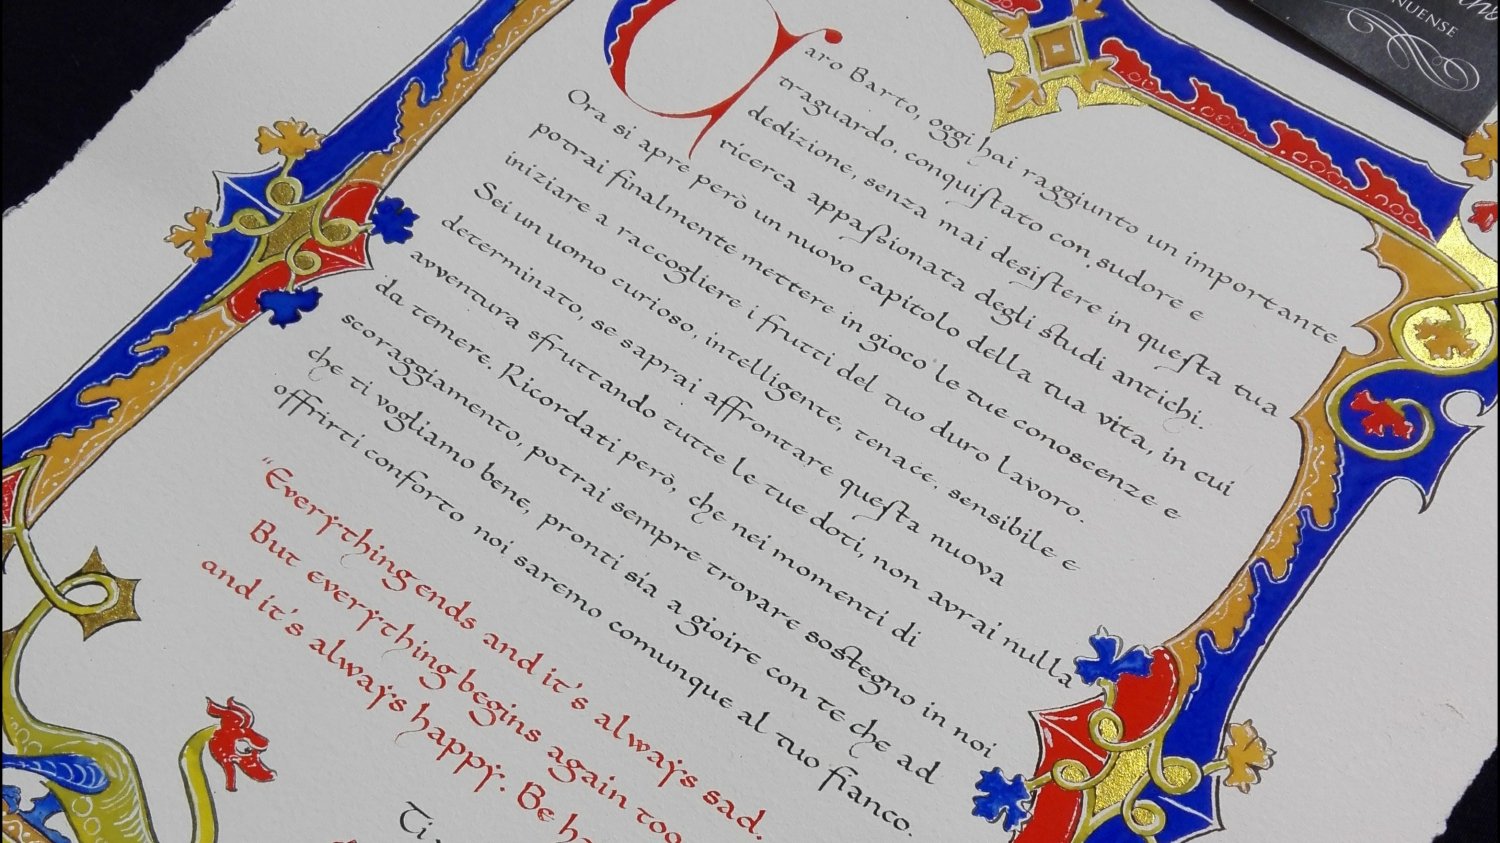 Caro Barto, oggi hai raggiunto un importante
traguardo, conquistato con sudore e
dedizione, senza mai desistere in questa tua
ricerca appassionata degli studi antichi.
Ora si apre però un nuovo capitolo della tua vita, in cui
potrai finalmente mettere in gioco le tue conoscenze e
iniziare a raccogliere i frutti del tuo duro lavoro.
Sei un uomo curioso, intelligente, tenace, sensibile e
determinato, se saprai affrontare questa nuova
avventura sfruttando tutte le tue doti, non avrai nulla
da temere. Ricordati però, che nei momenti di
scoraggiamento, potrai sempre trovare sostegno in noi
che ti vogliamo bene, pronti sia a gioire con te che ad
offrirti conforto noi saremo comunque al tuo fianco.
"Everything ends and it's always sad.
But everything begins again too
and it's always happy. Be
Ti
NUENSE